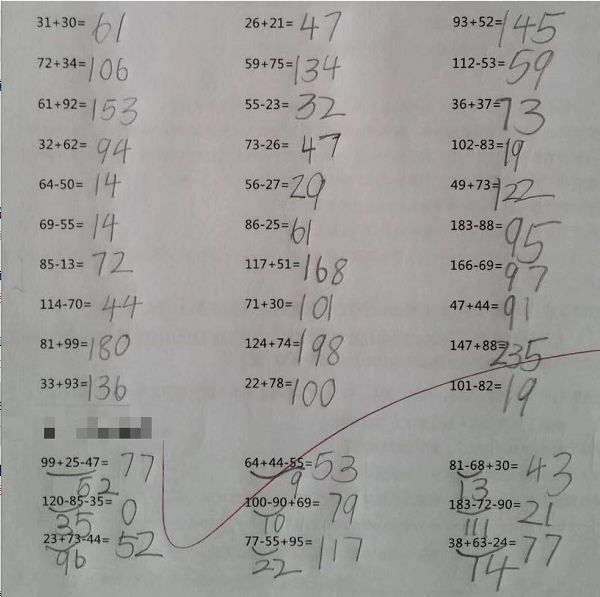 31+30=61 26+21=47 93+52=145
72+34=106 59+75=134 112-53=59
61+92=153 55-23=32 36+37=73
32+62=94 73-26=47 102-83=19
64-50=14 56-27=29 49+73=122
69-55=14 86-25=61 183-88=95
85-13=72 117+51=168 166-69=97
114-70=44 71+30=101 47+44=91
81+99=180 124+74=198 147+88=235
33+93=136 22+78=100 101-82=19
99+25-47=77 64+44-55=53 81-68+30=43
52 9 13
120-85-35=0 100-90+69=79 183-72-90=21
35 10 111
23+73-44=52 77-55+95=117 38+63-24=77
96 22 14